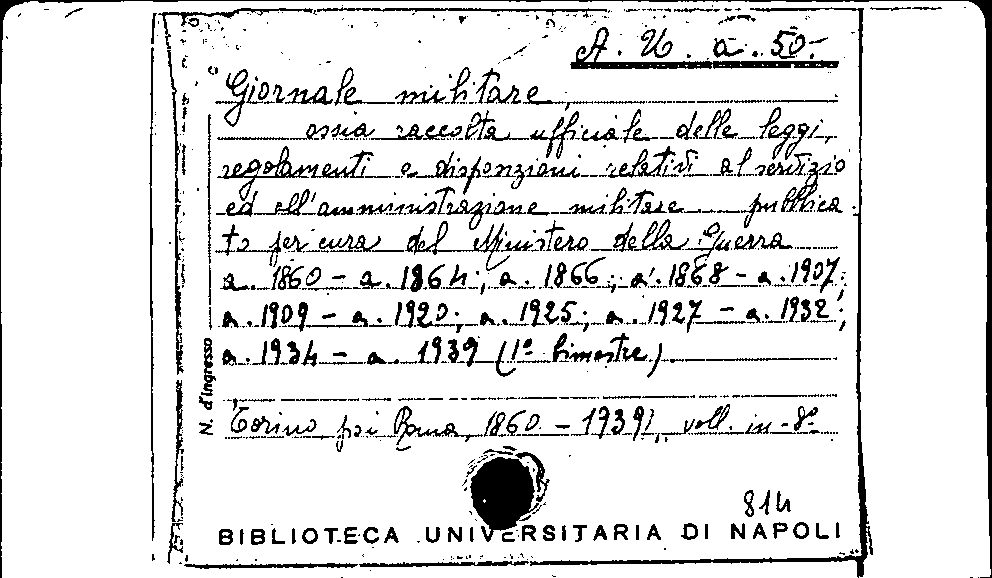 A. U. a. 50.-
Giornale militare,
ossia raccolta ufficiale delle leggi,
regolamenti e disposizioni relativi al servizio
ed all'amministrazione militare pubblica
to per cura del Ministero della Guerra
a. 1860 - a. 1864; a. 1866; a. 1868 - a. 1907;
a. 1909 - a. 1920; a. 1925; a. 1927 - a. 1932;
a. 1934 - a. 1939 (1º bimestre).
Torino, poi Roma, 1860 - 1939), voll. in-8º
N. d'ingresso
814
BIBLIOTECA UNIVERSITARIA DI NAPOLI